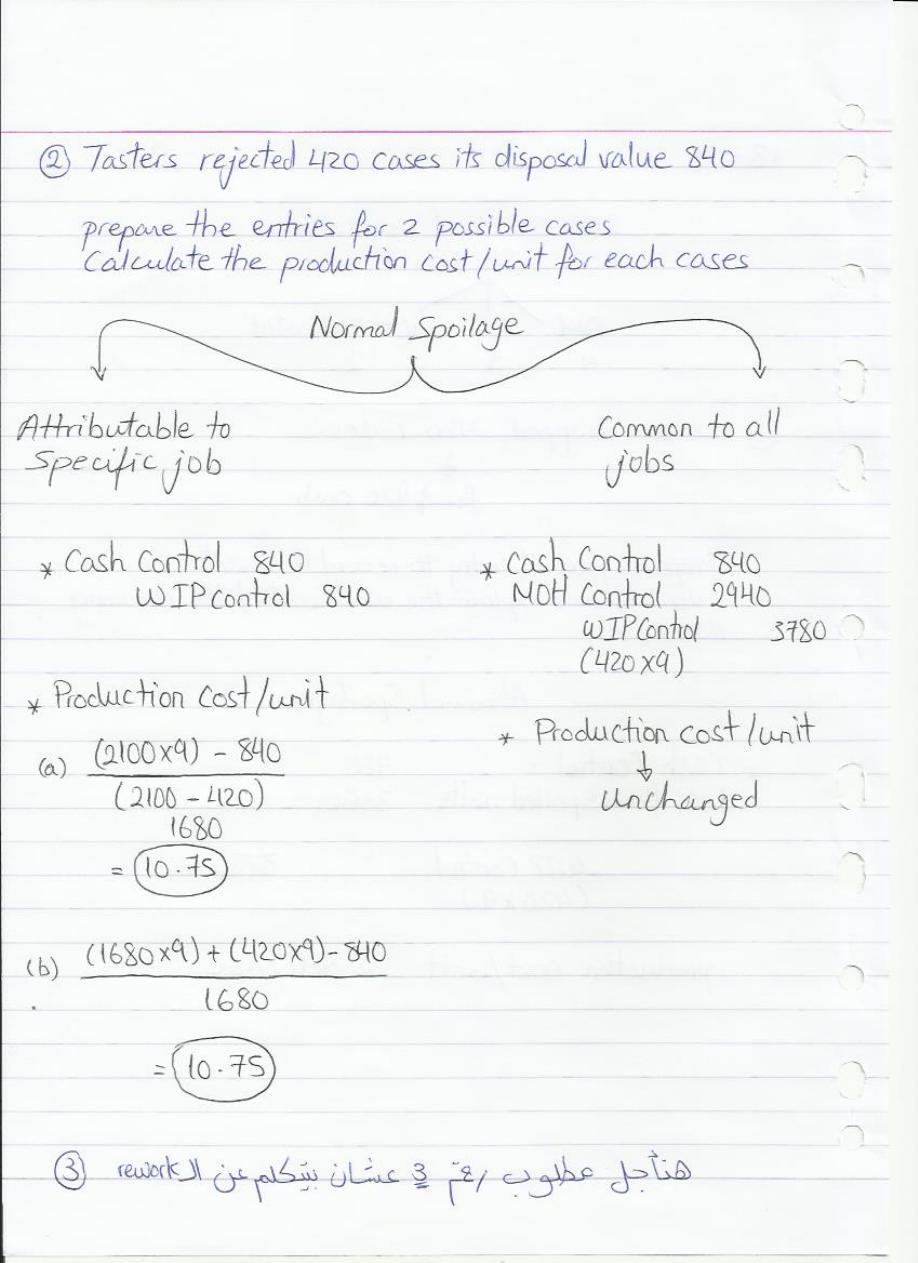 ② Tasters rejected 420 cases its disposal value 840
prepare the entries for 2 possible cases
Calculate the production cost/unit for each cases
Normal Spoilage
Attributable to
Specific job
* Cash Control 840
WIP control 840
* Production Cost/unit
(a) (2100x9) - 840
(2100 - 420)
1680
= 10.75
(b) (1680x9) + (420x9) - 840
1680
= 10.75
Common to all
jobs
* Cash Control 840
MOH Control 2940
WIP Control 3780
(420x9)
* Production cost/unit
↓
Unchanged
③ هنأجل مطلوب رقم 3 عشان بيتكلم عن الـ rework